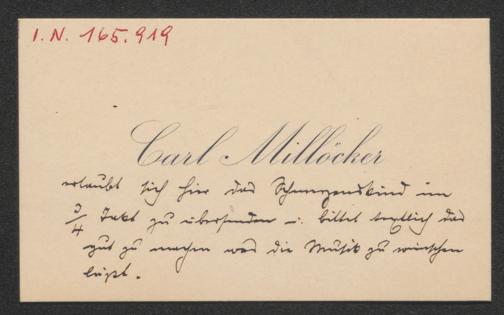 I.N. 165.919
Carl Millöcker
erlaubt sich hier das Schmerzenskind im
3/4 Takt zu übersenden u. bittet textlich das
gut zu machen was die Musik zu wünschen
läßt.